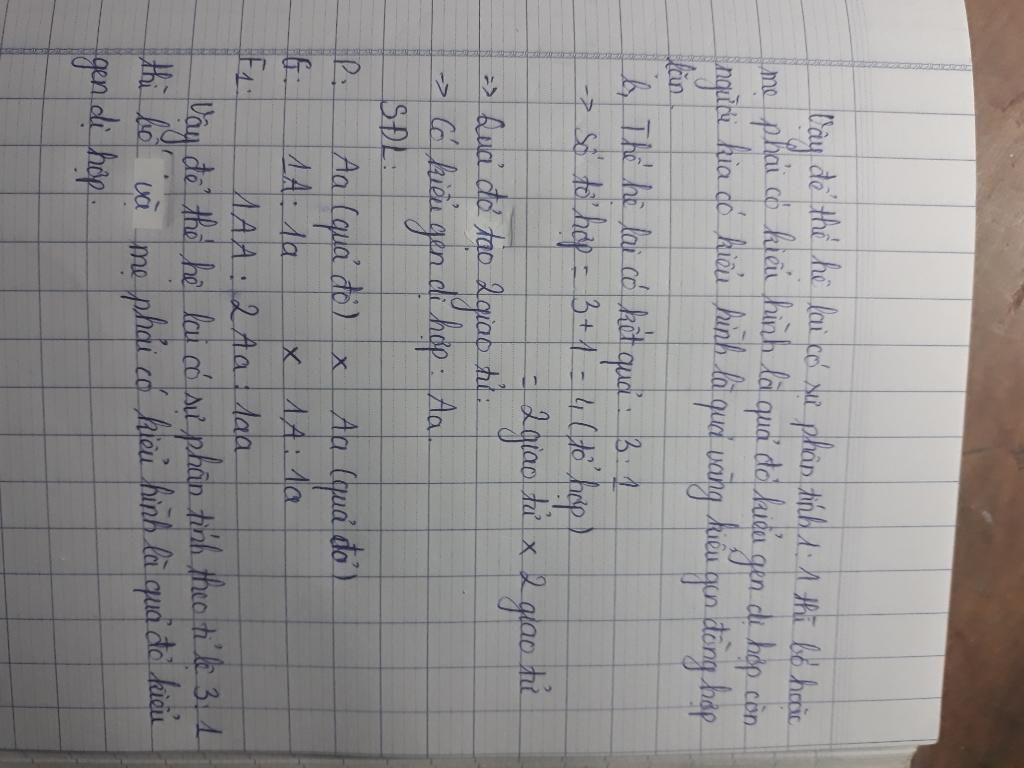 Vậy để thế hệ lai có sự phân tính 1:1 thì bố hoặc
mẹ phải có kiểu hình là quả đỏ kiểu gen dị hợp còn
người kia có kiểu hình là quả vàng kiểu gen đồng hợp
lặn.
b, Thế hệ lai có kết quả: 3:1
-> Số tổ hợp = 3+1 = 4 (tổ hợp)
= 2 giao tử x 2 giao tử
=> Quả đỏ tạo 2 giao tử:
=> Có kiểu gen dị hợp: Aa.
SĐL:
P: Aa (quả đỏ) x Aa (quả đỏ)
G: 1A:1a x 1A:1a
F1: 1AA: 2Aa: 1aa
Vậy để thế hệ lai có sự phân tính theo tỉ lệ 3:1
thì bố và mẹ phải có kiểu hình là quả đỏ kiểu
gen dị hợp.